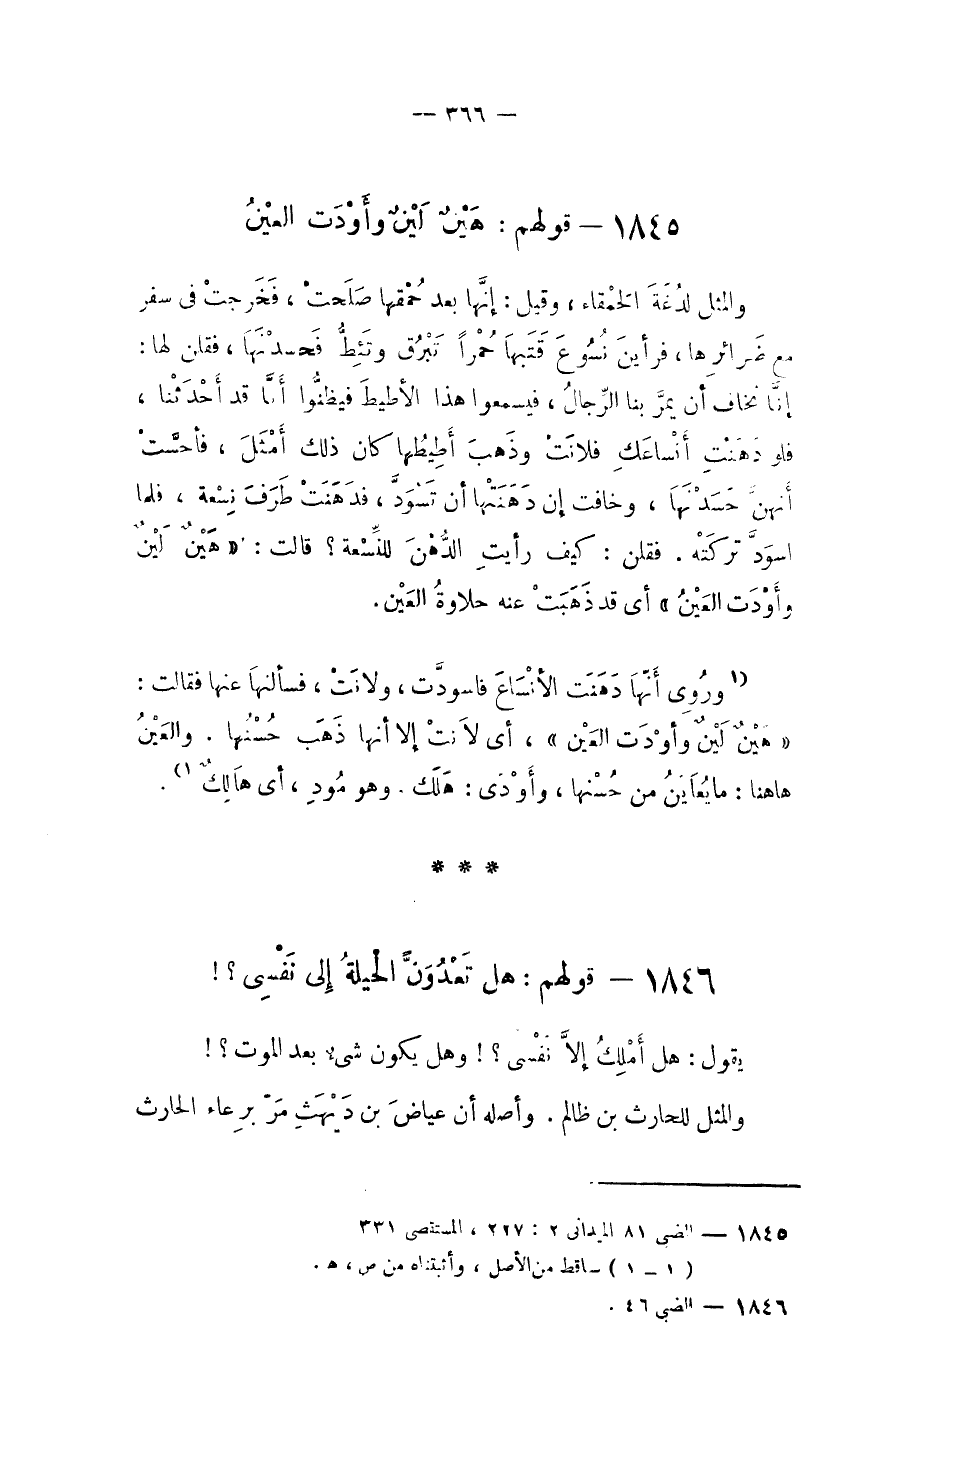 — ٣٦٦ —
١٨٤٥ — قولهم : هَيْنٌ لَيْنٌ وأَوْدَت العيْنُ
والمثل لدُغَةَ الحَمْقاء ، وقيل : إنَّها بعد حُمْقها صَلَحتْ ، فَخَرجتْ فى سفر
مع ضَرائرِها ، فرأينَ نُسُوعَ قَتَبِهَا حُمْراً تَبْرُق وتَئِطُّ فَحسدْنَهَا ، فقلن لها :
إنَّا نخاف أن يمرَّ بنا الرِّجالُ ، فيسمعوا هذا الأطيطَ فيظنُّوا أنَّا قد أَحْدَثْنا ،
فلو دَهَنْتِ أَنْساعَكِ فلانَتْ وذَهبَ أَطِيطُها كان ذلك أَمْثَلَ ، فأحسَّتْ
أنهنَّ حَسَدْنَهَا ، وخافت إن دَهَنَتْها أن تَسْوَدَّ ، فدَهَنَتْ طَرَفَ نِسْعة ، فلما
اسوَدَّ تركَتْه . فقلن : كيف رأيتِ الدُّهْنَ للنِّسْعة ؟ قالت : « هَيْنٌ لَيْنٌ
وأَوْدَت العَيْنُ » أى قد ذَهَبَتْ عنه حلاوةُ العَيْن .
(١ ورُوِى أنَّها دَهَنَت الأنْسَاعَ فاسودَّت ، ولانَتْ ، فسألنهَا عنها فقالت :
« هَيْنٌ لَيْنٌ وأوْدَت العَيْن » ، أى لاَنتْ إلا أنها ذَهَب حُسْنُها . والعَيْنُ
هاهنا : مايُعَايَنُ من حُسْنها ، وأَوْدَى : هَلَك . وهو مُودٍ ، أى هَالِكٌ ١) .
* * *
١٨٤٦ — قولهم : هل تَعْدُوَنَّ الحيلةُ إلى نَفْسِى ؟ !
يقول : هل أَمْلِكُ إلاَّ نَفْسى ؟ ! وهل يكون شىء بعد الموت ؟ !
والمثل للحارث بن ظالم . وأصله أن عياضَ بن دَيْهَثِ مَرّ برِعاء الحارث
١٨٤٥ — الضبى ٨١ الميدانى ٢ : ٢٢٧ ، المستقصى ٣٣١
( ١ ــ ١ ) ساقط من الأصل ، وأثبتناه من ص ، هـ .
١٨٤٦ — الضبى ٤٦ .